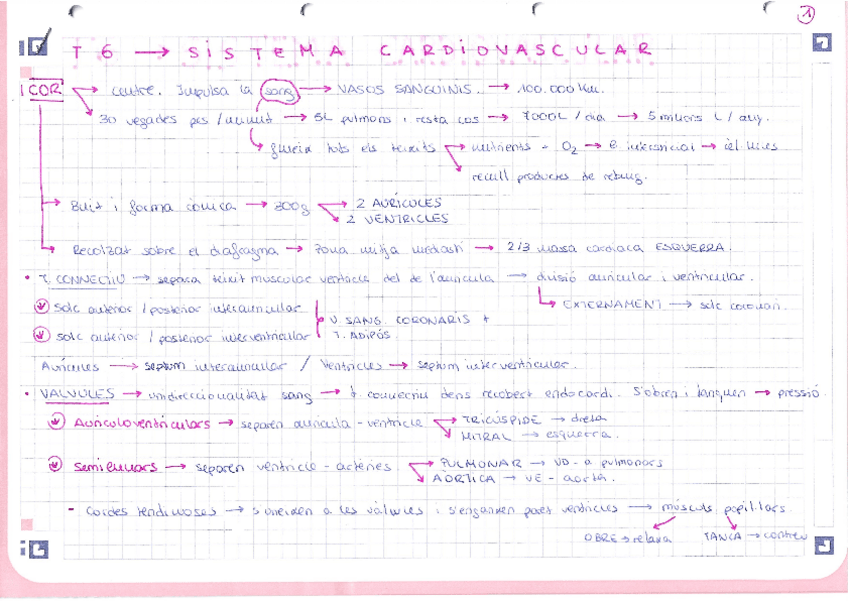 1
T6 → SISTEMA CARDIOVASCULAR
COR → centre. Impulsa la sang → VASOS SANGUINIS. → 100.000 Km.
30 vegades pes / minut → 5L pulmons i resta cos → 7000L / dia → 5 milions L / any.
tots els teixits → nutrients - O2 → e. intersticial → cèl·lules
recull productes de rebuig.
Buit i forma cònica → 300g → 2 AURÍCULES
2 VENTRICLES
Recolzat sobre el diafragma → zona mitja mediastí → 2/3 massa cardíaca ESQUERRA.
• T. CONNECTIU → separa teixit muscular ventricles del de l'aurícula → divisió auricular i ventricular.
EXTERNAMENT → solc coronari.
solc anterior / posterior interauricular
V. SANG. CORONARIS +
solc anterior / posterior interventricular
T. ADIPÓS
Aurícules → septum interauricular / Ventricles → septum interventricular.
• VALVULES → unidireccionalitat sang → t. connectiu dens recobert endocardi. S'obren i tanquen → pressió
Auriculoventriculars → separen aurícula - ventricle → TRICÚSPIDE → dreta
MITRAL → esquerra.
Semilunars → separen ventricle - artèries → PULMONAR → VD - a pulmonars
AÒRTICA → VE - aorta.
- Cordes tendinoses → s'uneixen a les vàlvules i s'enganxen paret ventricles → músculs papil·lars.
OBRE → relaxa TANCA → contreu